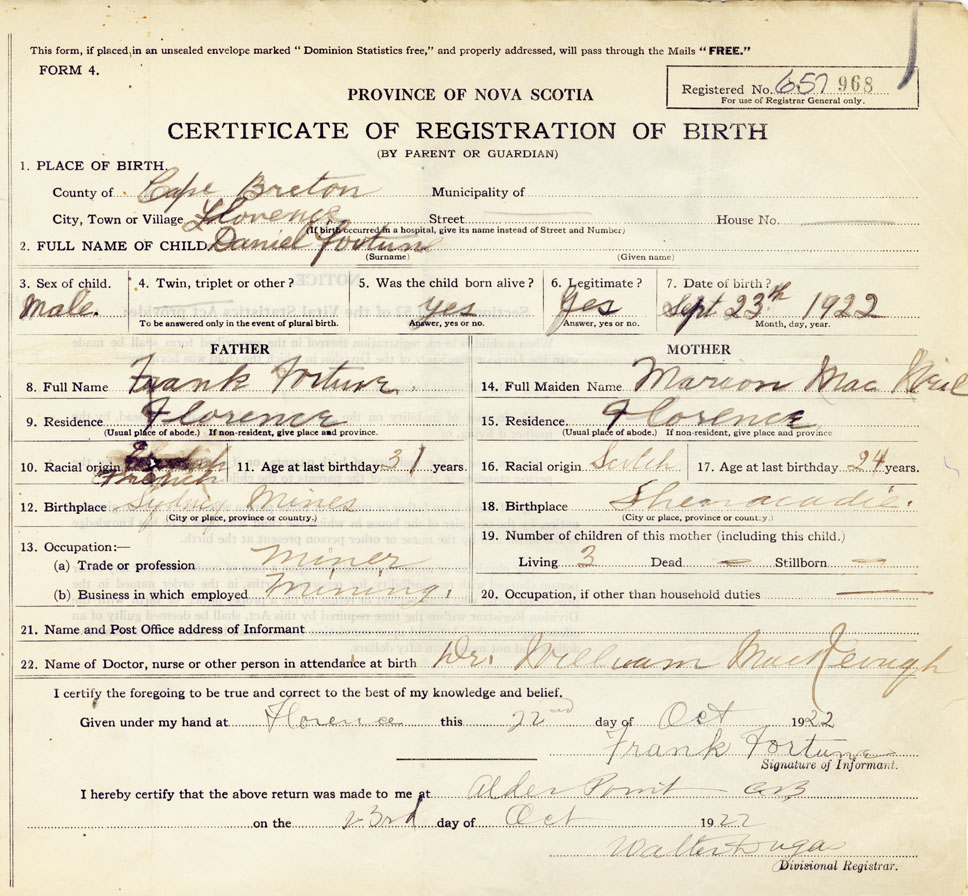 This form, if placed in an unsealed envelope marked "Dominion Statistics free," and properly addressed, will pass through the Mails "FREE."
FORM 4.
Registered No. 657 968
For use of Registrar General only.
PROVINCE OF NOVA SCOTIA
CERTIFICATE OF REGISTRATION OF BIRTH
(BY PARENT OR GUARDIAN)
1. PLACE OF BIRTH.
County of Cape Breton Municipality of
City, Town or Village Florence Street House No.
(If birth occurred in a hospital, give its name instead of Street and Number)
2. FULL NAME OF CHILD Daniel Fortune
(Surname) (Given name)
3. Sex of child. 4. Twin, triplet or other? 5. Was the child born alive? 6. Legitimate? 7. Date of birth?
Male. yes yes Sept 23th 1922
To be answered only in the event of plural birth. Answer, yes or no. Answer, yes or no. Month, day, year.
FATHER MOTHER
8. Full Name Frank Fortune 14. Full Maiden Name Marion Mac Neil
9. Residence Florence 15. Residence Florence
(Usual place of abode.) If non-resident, give place and province. (Usual place of abode.) If non-resident, give place and province
10. Racial origin French 11. Age at last birthday 31 years. 16. Racial origin Scotch 17. Age at last birthday 24 years.
12. Birthplace Sydney Mines 18. Birthplace Shenacadie.
(City or place, province or country.) (City or place, province or country.)
13. Occupation:— 19. Number of children of this mother (including this child.)
(a) Trade or profession Miner Living 3 Dead — Stillborn —
(b) Business in which employed Mining. 20. Occupation, if other than household duties
21. Name and Post Office address of Informant
22. Name of Doctor, nurse or other person in attendance at birth Dr. William MacKeough
I certify the foregoing to be true and correct to the best of my knowledge and belief.
Given under my hand at Florence this 22nd day of Oct 1922
Frank Fortune
Signature of Informant.
I hereby certify that the above return was made to me at Alder Point CB
on the 23rd day of Oct 1922
Walter Dugas
Divisional Registrar.